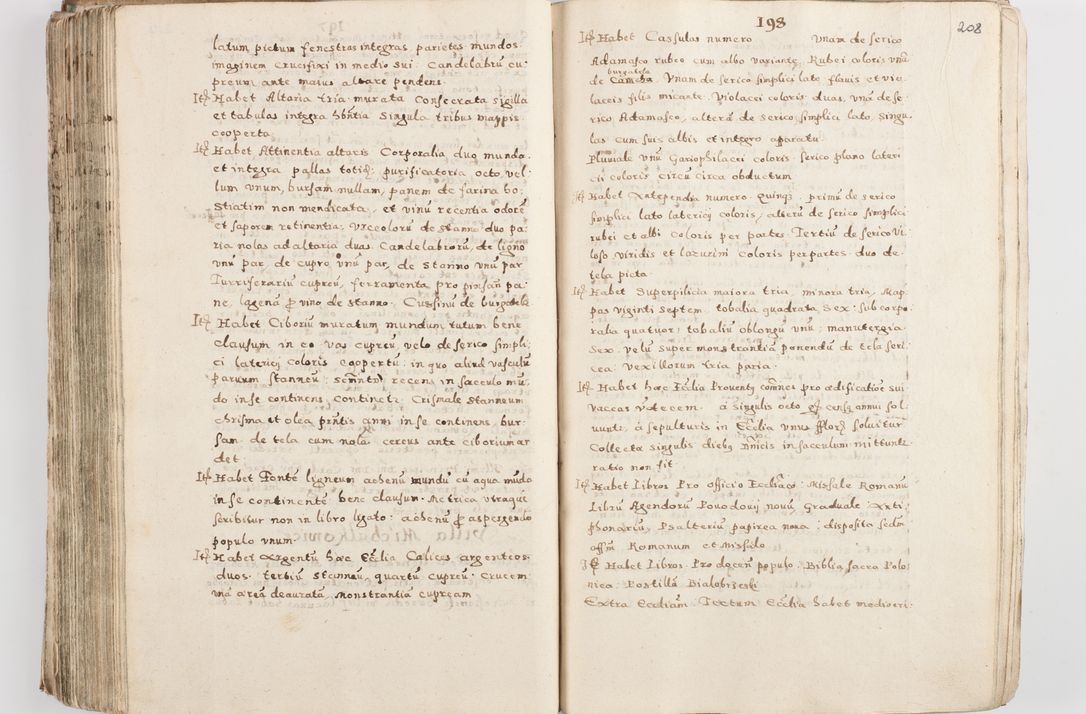 latum pictum fenestras integras, parietes mundos:
imaginem Crucifixi in medio sui. Candelabrũ cu
preum ante maius altare pendens.
Itẽ Habet Altaria tria murata Consecrata sigilla
et tabulas integra hñtia Singula tribus mappis
cooperta.
Itẽ Habet Attinentia altaris Corporalia duo munda.
et integra pallas totid: purificatoria octo, vel-
lum vnum, bursam nullam, panem de farina bo:
Stiatim non mendicata, et vinũ recentia odorẽ
et saporem retinentia, Vrceolorũ de stanno duo pa
ria nolas ad altaria duas. Candelabrorũ, de ligno
vnũ par, de cupro vnũ par, de stanno vnũ par
Turriferariũ cupreũ, ferramenta pro pinsãn pa
ne, lagenã p vino de stanno. Cussinũ de burgatela
Itẽ Habet Ciboriũ muratum mundum tutum bene
clausum in eo vas cupreũ, velo de serico simpli:
ci latericij coloris coopertũ: in quo aliud vasculũ
paruum stanneũ: scm̃ntũ recens in sacculo mũ
do in se continens, continetz. Crismale stanneum
chrisma et olea pr̃ntis anni in se continens, bur-
sam. de tela cum nola: cereus ante ciborium ar
det.
Itẽ Habet Fontẽ ligneum achenũ mundũ cũ aqua mũda
in se continentẽ bene clausum. Metrica vtraqũ
scribitur non in libro ligato: achenũ p aspergendo
populo vnum.
Itẽ Habet Argentũ hæc Eccl̃ia Calices argenteos.
duos. tertiũ stanneũ, quartũ cupreũ: Crucem
vnã aream deauratã, Monstrantiã cupream
198
208
Itẽ Habet Cassulas numero vnam de serico
Adamasco rubro cum albo variante, Rubei coloris vnã
burgatela
de Vnam de serico simplici lato flauis et vio
laceis filis micante. Violacei coloris duas, vnã de se-
rico Adamasco, alterã de serico simplici lato, Singu-
las cum suis albis et integro aparatu.
Pluuiale vnũ Gariophilacei coloris: serico plano lateri
cii coloris circũ circa obductum
Itẽ Habet Antependia numero. Quinqz. primũ de serico
simplici lato latericij coloris, alterũ de serico simplici
rubei et albi coloris per partes. Tertiũ de serico vi
loso viridis et lazurini coloris per partes duo de-
tela picta.
Itẽ Habet Superpilicia maiora tria, minora tria, Map
pas Viginti septem. tobalia quadrata. Sex: sub corpo-
ralia quatuor, tobaliũ oblongũ vnũ; manutergia.
Sex. velũ super monstrantiã ponendũ de tela seri
cea, vexillorum tria paria.
Itẽ Habet hæc Eccl̃ia Prouentq com̃nes pro ædificatiõe sui
vaccas V decem. à singulis octo gr censq annui sol:
uunt, à sepulturis in Eccl̃ia vnus flor soluitur
Collecta singulis diebq dñicis in sacculum mittuntz
ratio non fit.
Itẽ Habet Libros Pro officio Eccl̃iaco. Missale Romanũ
Librũ Agendorũ Pouodouij nouũ, Graduale Anti
phonariũ, Psalteriũ papirea noua: disposita secdm
offm̃ Romanum et Missalo
Itẽ Habet Libros. Pro docen populo. Biblia sacra Polo
nica. Postillã Bialobrzeski
Extra Eccl̃iam. Tectum Eccl̃ia habet mediocri: